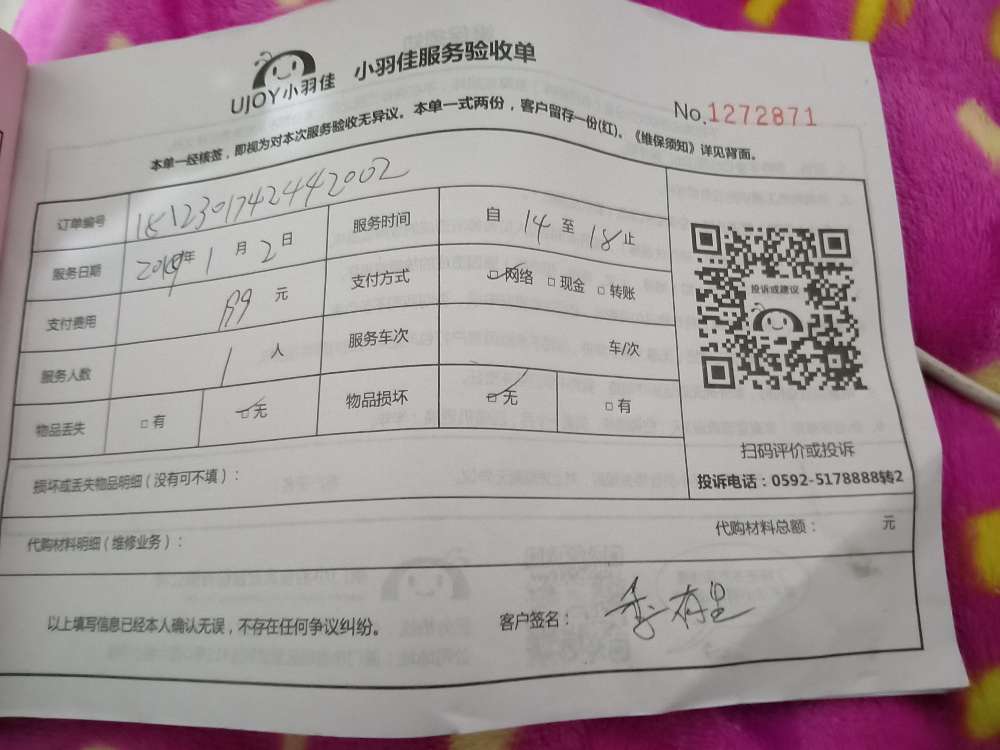 UJOY小羽佳 小羽佳服务验收单
No.1272871
本单一经核签，即视为对本次服务验收无异议。本单一式两份，客户留存一份(红)。《维保须知》详见背面。
订单编号 1812301742442002
服务日期 2019年1月2日 服务时间 自14至18止
支付费用 元 支付方式 □网络 □现金 □转账
服务人数 1人 服务车次 车/次
物品丢失 □有 □无 物品损坏 □无 □有
投诉或建议
扫码评价或投诉
投诉电话：0592-5178888转2
损坏或丢失物品明细（没有可不填）：
代购材料明细（维修业务）： 代购材料总额： 元
以上填写信息已经本人确认无误，不存在任何争议纠纷。 客户签名：